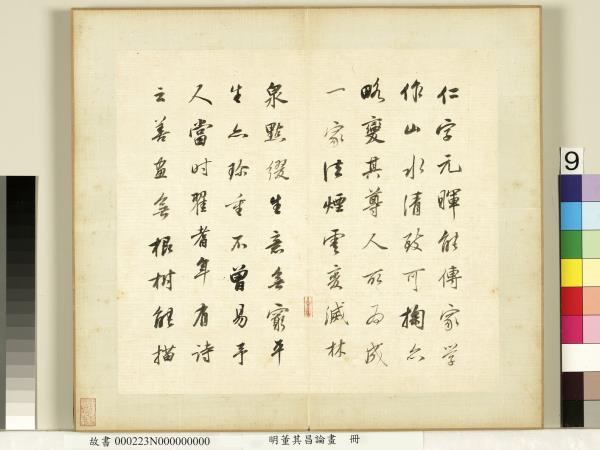 仁字元暉能傳家学
作山水清致可掬亦
略變其尊人所為成
一家法煙雲變滅林
泉點綴生意無窮平
生亦珍重不曾易予
人當時翟耆年有詩
云善畫無根樹能描
9
故書 000223N000000000 明董其昌論畫 冊